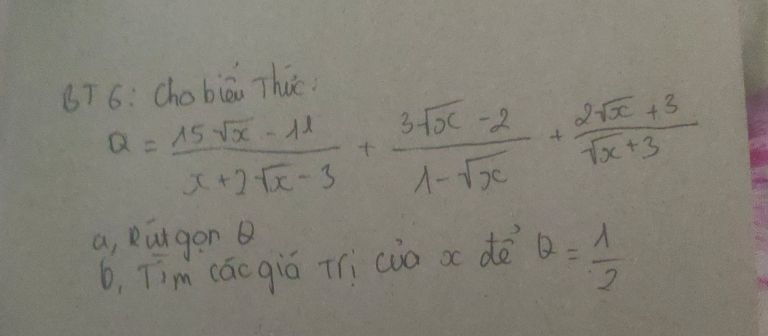 BT 6: Cho biểu Thức:
Q = (15√x - 11)/(x + 2√x - 3) + (3√x - 2)/(1 - √x) + (2√x + 3)/(√x + 3)
a, Rút gọn Q
b, Tìm các giá trị của x để Q = 1/2